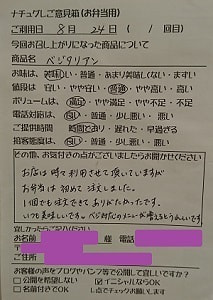 ナチュグレご意見箱(お弁当用)
ご利用日 8月 24日 ( / 回目)
今回お召し上がりになった商品について
商品名 ベジタリアン
お味は、美味しい・普通・あまり美味しくない・まずい
値段は 安い・やや安い・普通・やや高い・高い
ボリュームは、満足・やや満足・普通・やや不満・不満
電話対応は、良い・普通・少し悪い・悪い
ご提供時間 時間どおり・遅れた・早過ぎる
接客態度は、良い・普通・少し悪い・悪い
その他、お気付きの点がございましたらお聞かせください
お店は時々利用させて頂いてますが
お弁当は初めて注文しました。
1個でも注文できてありがたかったです。
いつも美味しいです。ベジ対応のメニューが増えるとうれしいです
宜しかったらご記入ください
お名前 様 電話
ご住所
お客様の声をブログやパンフ等で公開して宜しいですか
□公開を希望しない ☑イニシャルなら OK
□名前付きで OK レ点でチェックお願いします